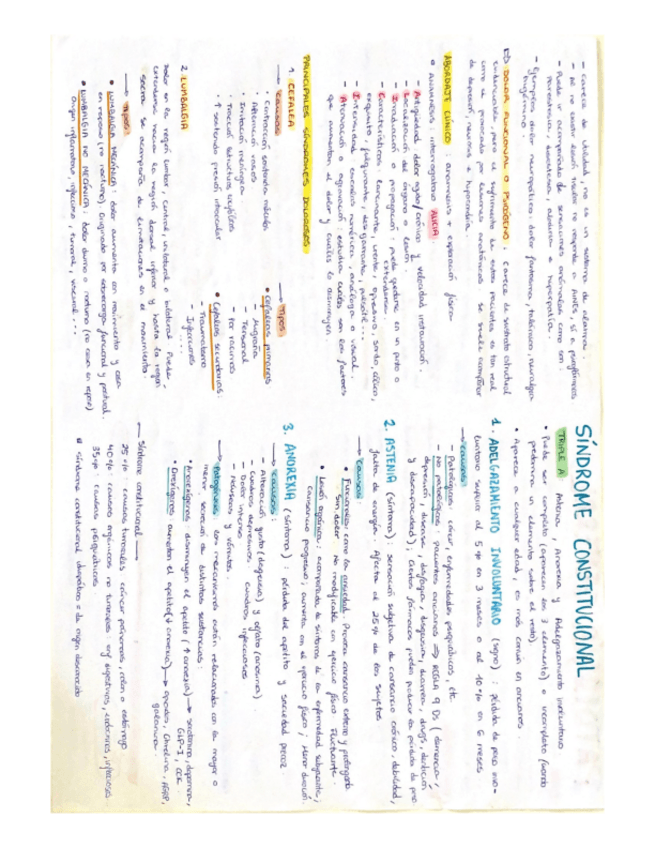 - carece de utilidad, no es un sistema de alarma.
- Al no existir lesión tisular no responde a AINES, sí a psicofármacos
- Puede ir acompañado de sensaciones anómalas como son:
parestesias, disestesia, alodinia e hiperpatía
- Ejemplos: dolor neuropático: dolor fantasma, talámico, neuralgia
trigémino.
DOLOR FUNCIONAL O PSICÓGENO: carece de sustrato estructural
embargo, pero el sufrimiento de estos pacientes es tan real
como el provocado por lesiones anatómicas. Se suele
de depresión, neurosis e hipocondría.
ABORDAJE CLÍNICO: anamnesis + exploración física
Anamnesis: interrogatorio ALICIA
- Antigüedad: dolor agudo/crónico y velocidad instauración.
- Localización del órgano o lesión
- Irradiación o propagación: puede quedarse en un punto o
extenderse.
- Características: lancinante, urente, opresivo, sordo, cólico,
exquisito, fulgurante, desgarrante, pulsátil
- Intensidad: escalas numérica, análoga o visual.
- Atenuación o agravación: estudia cuáles son los factores
que aumentan el dolor y cuáles lo disminuyen.
PRINCIPALES SÍNDROMES DOLOROSOS
1. CEFALEA
→ Causas:
• Contracción sostenida músculos
• Alteración vasos
• Irritación meníngea
• Tracción estructuras
• ↑ sostenido presión intraocular
→ Tipos
• Cefaleas primarias
- Migraña
- Tensional
- Por racimos
• Cefaleas secundarias:
- Traumatismo
- Infecciones
2. LUMBALGIA
Dolor en la región lumbar, central, unilateral o bilateral. Puede
extenderse hacia la región dorsal inferior y hasta la región
sacra. Se acompaña de limitaciones en el movimiento
→ Tipos:
• LUMBALGIA MECÁNICA: dolor aumenta con movimiento y cesa
en reposo (no nocturno). Originado por sobrecarga funcional y postural.
• LUMBALGIA NO MECÁNICA: dolor diurno o nocturno (no cesa en reposo)
Origen inflamatorio, infeccioso, tumoral, visceral...
SÍNDROME CONSTITUCIONAL
TRIPLE A: Astenia, Anorexia y Adelgazamiento involuntario
• Puede ser completo (aparecen los 3 elementos) o incompleto (cuando
predomina un elemento sobre el resto)
• Aparece a cualquier edad, es más común en ancianos.
1. ADELGAZAMIENTO INVOLUNTARIO (signo): pérdida de peso invo-
luntario superior al 5% en 3 meses o al 10% en 6 meses
→ causas:
- Patológicas: cáncer, enfermedades psiquiátricas, etc
- No patológicas: pacientes ancianos ⇒ REGLA 9 Ds (demencia,
depresión, disease, disfagia, disgeusia, diarrea, drugs, dentición
y discapacidad); ciertos fármacos pueden producir la pérdida de peso.
2. ASTENIA (síntoma): sensación subjetiva de cansancio crónico, debilidad,
falta de energía. Afecta al 25% de los sujetos
→ causas:
• Funcional: como la ansiedad. Provoca cansancio extremo y prolongado
sin dolor. No modificable con ejercicio físico. Fluctuante.
• Lesión orgánica: acompañada de síntomas de la enfermedad subyacente;
cansancio progresivo; aumenta con el ejercicio físico; Menor duración.
3. ANOREXIA (síntoma): pérdida del apetito y saciedad precoz
→ causas:
- Alteración gusto (disgeusia) y olfato (anosmia).
- Cuadros depresivos, cuadros infecciosos
- Dolor intenso
- Náuseas y vómitos.
→ Patogénesis: los mecanismos están relacionados con la mayor o
menor secreción de distintas sustancias:
• Anorexígenos: disminuyen el apetito (↑ anorexia) → serotonina, dopamina,
GLP-1, CCK
• Orexígenos: aumentan el apetito (↓ anorexia) → opioides, Ghrelina, AGRP,
galanina.
Síndrome constitucional
25%: causas tumorales: cáncer páncreas, colon o estómago
40%: causas orgánicas no tumorales: enf digestivas, endocrinas, infecciosas
35%: causas psiquiátricas
Síndrome constitucional idiopático: es de origen desconocido